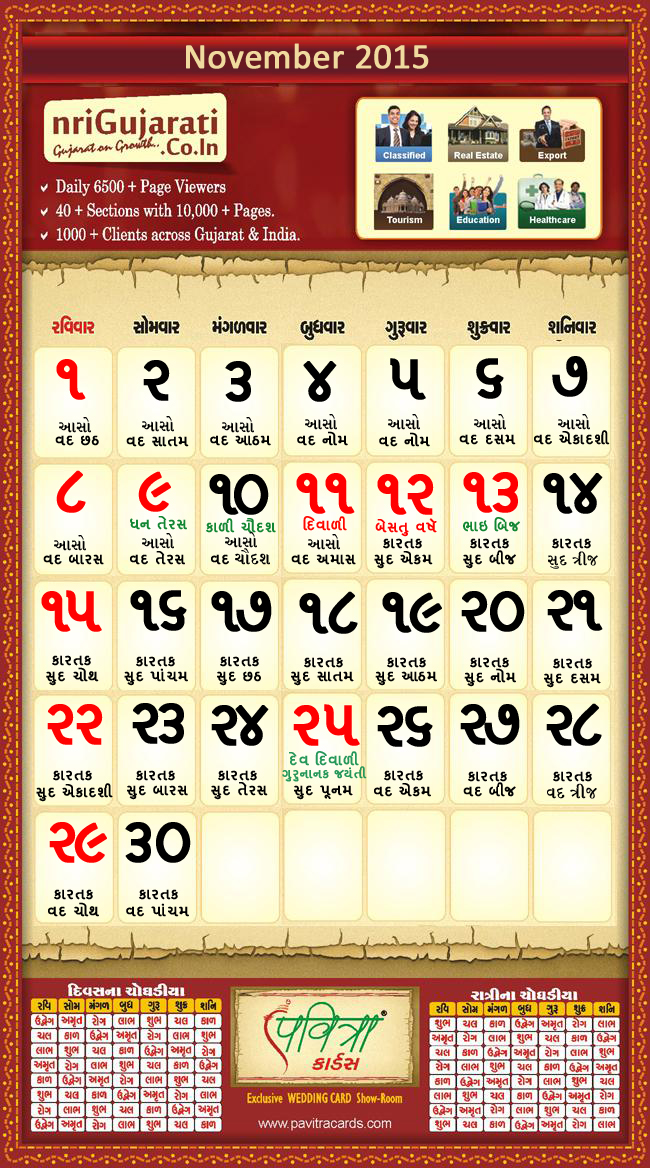 November 2015
nriGujarati
Gujarat on Growth..
.Co.In
Daily 6500 + Page Viewers
40 + Sections with 10,000 + Pages.
1000 + Clients across Gujarat & India.
Classified Real Estate Export
Tourism Education Healthcare
રવિવાર સોમવાર મંગળવાર બુધવાર ગુરૂવાર શુક્રવાર શનિવાર
૧ ૨ ૩ ૪ ૫ ૬ ૭
આસો આસો આસો આસો આસો આસો આસો
વદ છઠ વદ સાતમ વદ આઠમ વદ નોમ વદ નોમ વદ દસમ વદ એકાદશી
૮ ૯ ૧૦ ૧૧ ૧૨ ૧૩ ૧૪
ધન તેરસ કાળી ચૌદશ દિવાળી બેસતુ વર્ષ ભાઇ બિજ
આસો આસો આસો આસો કારતક કારતક કારતક
વદ બારસ વદ તેરસ વદ ચૌદશ વદ અમાસ સુદ એકમ સુદ બીજ સુદ ત્રીજ
૧૫ ૧૬ ૧૭ ૧૮ ૧૯ ૨૦ ૨૧
કારતક કારતક કારતક કારતક કારતક કારતક કારતક
સુદ ચોથ સુદ પાંચમ સુદ છઠ સુદ સાતમ સુદ આઠમ સુદ નોમ સુદ દસમ
૨૨ ૨૩ ૨૪ ૨૫ ૨૬ ૨૭ ૨૮
દેવ દિવાળી
ગુરુનાનક જયંતી
કારતક કારતક કારતક કારતક કારતક કારતક
સુદ એકાદશી સુદ બારસ સુદ તેરસ સુદ પૂનમ વદ એકમ વદ બીજ વદ ત્રીજ
૨૯ ૩૦
કારતક કારતક
વદ ચોથ વદ પાંચમ
દિવસના ચોઘડીયા
રવિ સોમ મંગળ બુધ ગુરૂ શુક્ર શનિ
ઉદ્વેગ અમૃત રોગ લાભ શુભ ચલ કાળ
ચલ કાળ ઉદ્વેગ અમૃત રોગ લાભ શુભ
લાભ શુભ ચલ કાળ ઉદ્વેગ અમૃત રોગ
અમૃત રોગ લાભ શુભ ચલ કાળ ઉદ્વેગ
કાળ ઉદ્વેગ અમૃત રોગ લાભ શુભ ચલ
શુભ ચલ કાળ ઉદ્વેગ અમૃત રોગ લાભ
રોગ લાભ શુભ ચલ કાળ ઉદ્વેગ અમૃત
ઉદ્વેગ અમૃત રોગ લાભ શુભ ચલ કાળ
પવિત્રા®
કાર્ડસ
Exclusive WEDDING CARD Show-Room
www.pavitracards.com
રાત્રીના ચોઘડીયા
રવિ સોમ મંગળ બુધ ગુરૂ શુક્ર શનિ
શુભ ચલ કાળ ઉદ્વેગ અમૃત રોગ લાભ
અમૃત રોગ લાભ શુભ ચલ કાળ ઉદ્વેગ
ચલ કાળ ઉદ્વેગ અમૃત રોગ લાભ શુભ
રોગ લાભ શુભ ચલ કાળ ઉદ્વેગ અમૃત
કાળ ઉદ્વેગ અમૃત રોગ લાભ શુભ ચલ
લાભ શુભ ચલ કાળ ઉદ્વેગ અમૃત રોગ
ઉદ્વેગ અમૃત રોગ લાભ શુભ ચલ કાળ
શુભ ચલ કાળ ઉદ્વેગ અમૃત રોગ લાભ